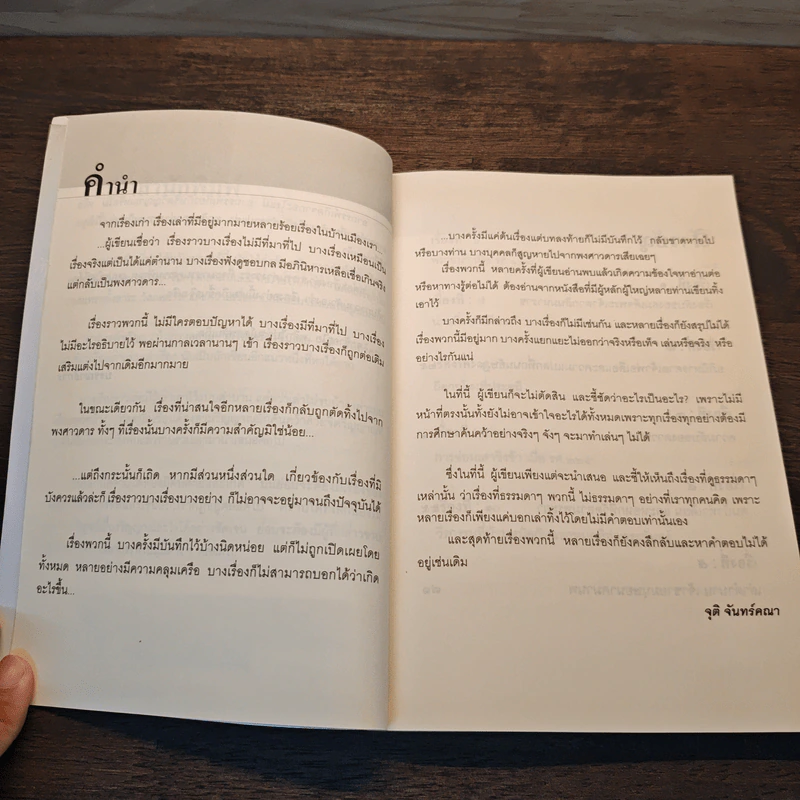 คำนำ
จากเรื่องเก่า เรื่องเล่าที่มีอยู่มากมายหลายร้อยเรื่องในบ้านเมืองเรา...
...ผู้เขียนเชื่อว่า เรื่องราวบางเรื่องไม่มีที่มาที่ไป บางเรื่องเหมือนเป็น
เรื่องจริงแต่เป็นได้แค่ตำนาน บางเรื่องฟังดูชอบกล มีอภินิหารเหลือเชื่อเกินจริง
แต่กลับเป็นพงศาวดาร...
เรื่องราวพวกนี้ ไม่มีใครตอบปัญหาได้ บางเรื่องมีที่มาที่ไป บางเรื่อง
ไม่มีอะไรอธิบายไว้ พอผ่านกาลเวลานานๆ เข้า เรื่องราวบางเรื่องก็ถูกต่อเติม
เสริมแต่งไปจากเดิมอีกมากมาย
ในขณะเดียวกัน เรื่องที่น่าสนใจอีกหลายเรื่องก็กลับถูกตัดทิ้งไปจาก
พงศาวดาร ทั้งๆ ที่เรื่องนั้นบางครั้งก็มีความสำคัญมิใช่น้อย...
...แต่ถึงกระนั้นก็เถิด หากมีส่วนหนึ่งส่วนใด เกี่ยวข้องกับเรื่องที่มิ
บังควรแล้วล่ะก็ เรื่องราวบางเรื่องบางอย่าง ก็ไม่อาจจะอยู่มาจนถึงปัจจุบันได้
เรื่องพวกนี้ บางครั้งมีบันทึกไว้บ้างนิดหน่อย แต่ก็ไม่ถูกเปิดเผยโดย
ทั้งหมด หลายอย่างมีความคลุมเครือ บางเรื่องก็ไม่สามารถบอกได้ว่าเกิด
อะไรขึ้น...
...บางครั้งมีแค่ต้นเรื่องแต่บทลงท้ายก็ไม่มีบันทึกไว้ กลับขาดหายไป
หรือบางท่าน บางบุคคลก็สูญหายไปจากพงศาวดารเสียเฉยๆ
เรื่องพวกนี้ หลายครั้งที่ผู้เขียนอ่านพบแล้วเกิดความข้องใจหาอ่านต่อ
หรือหาทางรู้ต่อไม่ได้ ต้องอ่านจากหนังสือที่มีผู้หลักผู้ใหญ่หลายท่านเขียนทิ้ง
เอาไว้
บางครั้งก็มีกล่าวถึง บางเรื่องก็ไม่มีเช่นกัน และหลายเรื่องก็ยังสรุปไม่ได้
เรื่องพวกนี้มีอยู่มาก บางครั้งแยกแยะไม่ออกว่าจริงหรือเท็จ เล่นหรือจริง หรือ
อย่างไรกันแน่
ในที่นี้ ผู้เขียนก็จะไม่ตัดสิน และชี้ชัดว่าอะไรเป็นอะไร? เพราะไม่มี
หน้าที่ตรงนั้นทั้งยังไม่อาจเข้าใจอะไรได้ทั้งหมดเพราะทุกเรื่องทุกอย่างต้องมี
การศึกษาค้นคว้าอย่างจริงๆ จังๆ จะมาทำเล่นๆ ไม่ได้
ซึ่งในที่นี้ ผู้เขียนเพียงแต่จะนำเสนอ และชี้ให้เห็นถึงเรื่องที่ดูธรรมดาๆ
เหล่านั้น ว่าเรื่องที่ธรรมดาๆ พวกนี้ ไม่ธรรมดาๆ อย่างที่เราทุกคนคิด เพราะ
หลายเรื่องก็เพียงแค่บอกเล่าทิ้งไว้โดยไม่มีคำตอบเท่านั้นเอง
และสุดท้ายเรื่องพวกนี้ หลายเรื่องก็ยังคงลึกลับและหาคำตอบไม่ได้
อยู่เช่นเดิม
จุติ จันทร์คณา